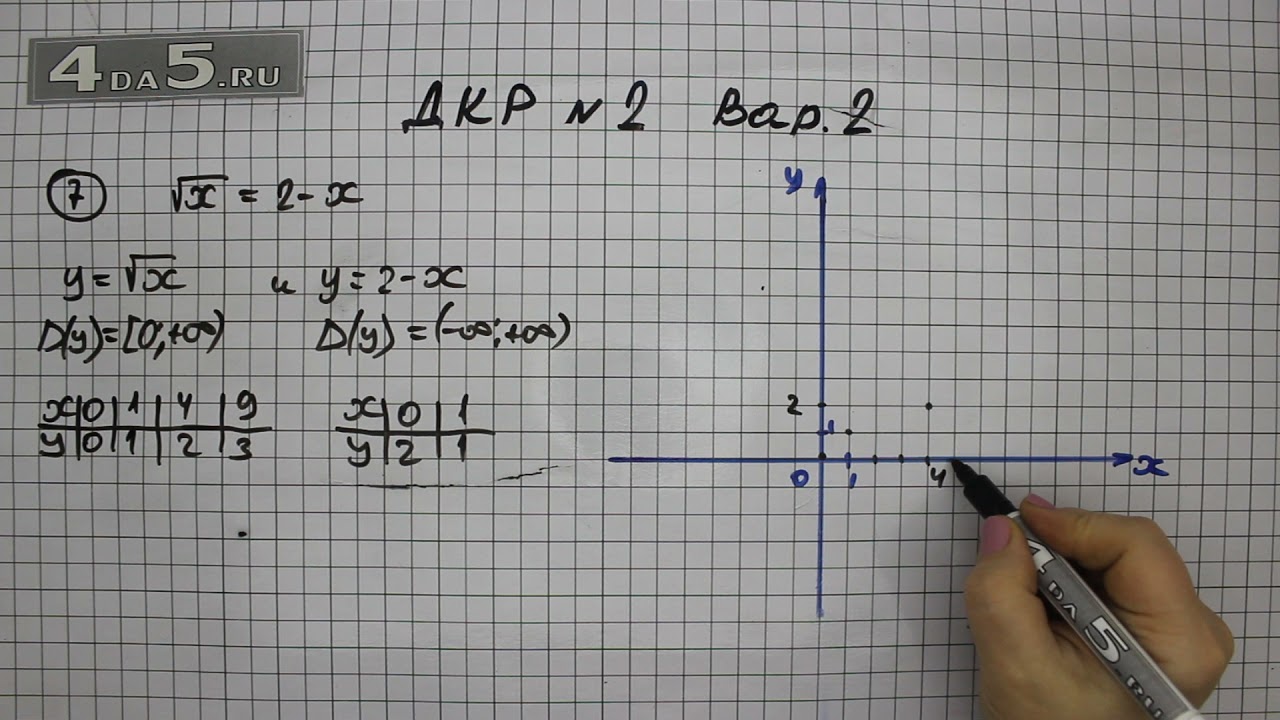 4DA5.RU
ДКР №2 Вар. 2
7 √x = 2 - x
y = √x и y = 2 - x
D(y) = [0; +∞) D(y) = (-∞; +∞)
x 0 1 4 9
y 0 1 2 3
x 0 1
y 2 1
y
2
1
0 1 4 x
4DA5.RU